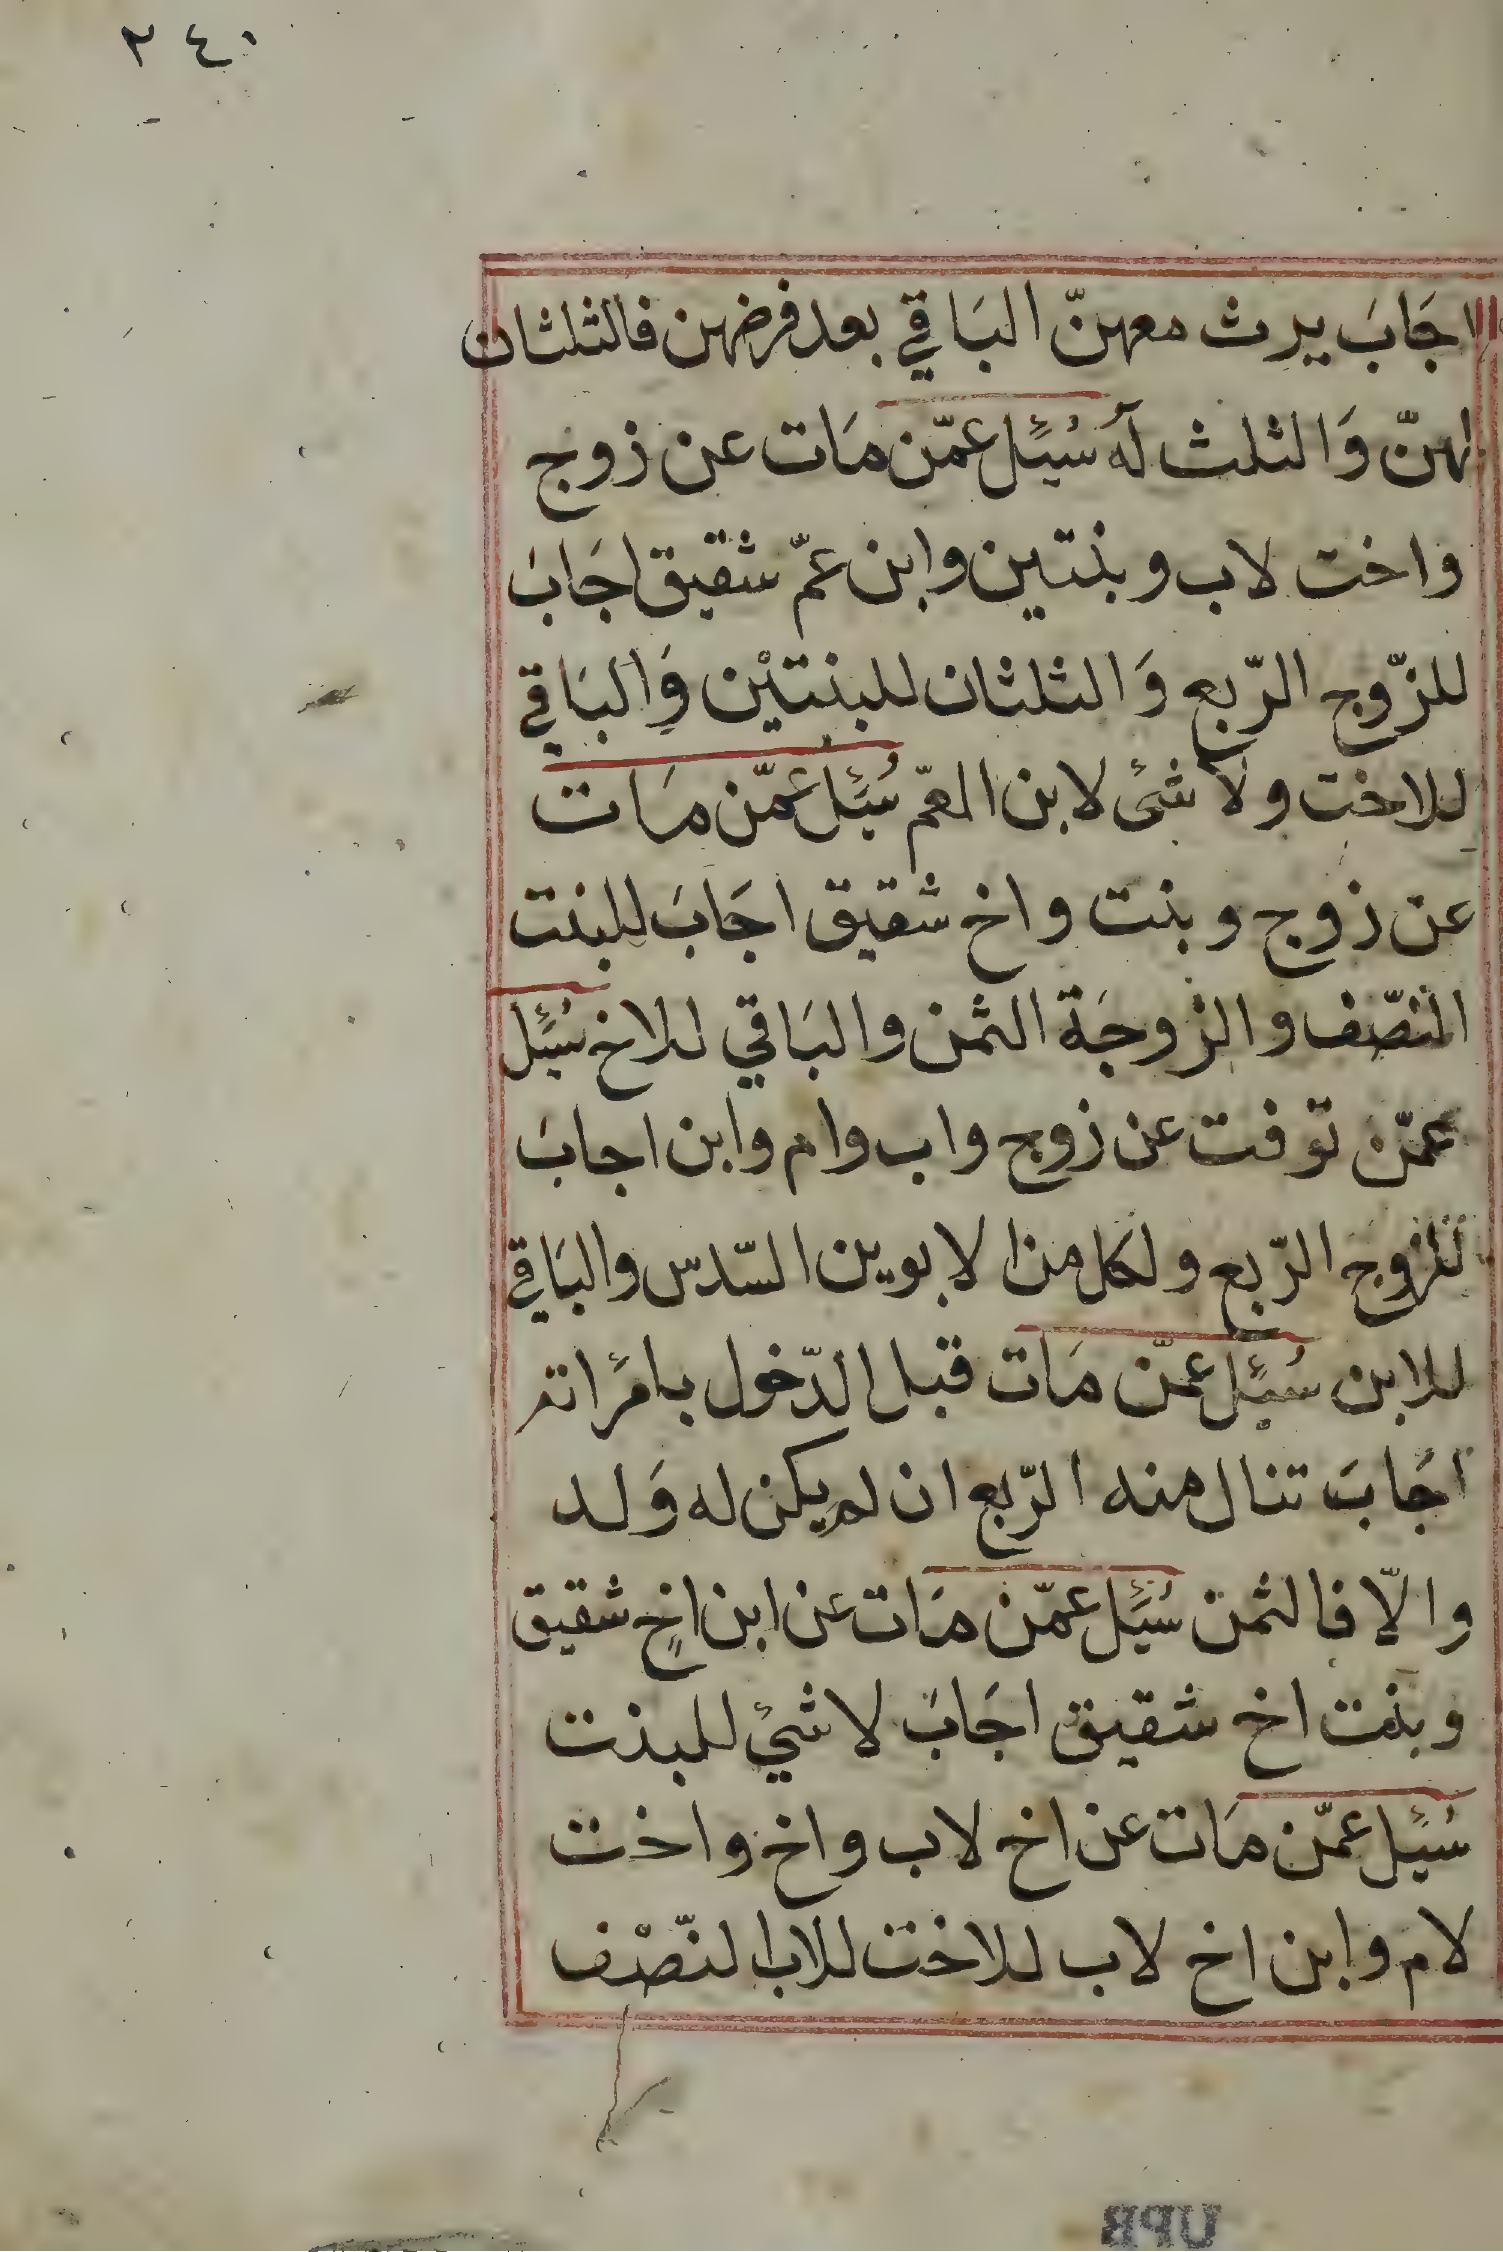 ٢٤٠
اجَابَ يرث معهنّ البَاقي بعد فرضهن فالثلثان
لهنّ وَالثلث لَه سُئِل عمّن مَات عن زوج
واخت لاب وبنتين وابن عمّ شقيق اجَابَ
للزّوج الرّبع وَالثلثان للبنتيْن وَالبَاقي
للاخت ولَا شئ لابن العمّ سُئِل عمّن مَات
عن زوج وبنت واخ شقيق اجَابَ للبنت
النصّف والزوجَة الثمن والبَاقي للاخ سُئِل
عمّن توفت عن زوج واب وام وابن اجابَ
للزوج الرّبع ولكل من الابوين السّدس والبَاقي
للابن سُئِل عمّن مَات قبل الدّخول بامرَاته
اجَابَ تنال منه الرّبع ان لم يكن له وَلد
والّا فالثمن سُئِل عمّن مَات عن ابن اخٍ شقيق
وبنت اخ شقيق اجَابَ لا شئَ للبنت
سُئِل عمّن مَات عن اخ لاب واخ واخت
لام وابن اخ لاب للاخت للاب النّصْف
UPB